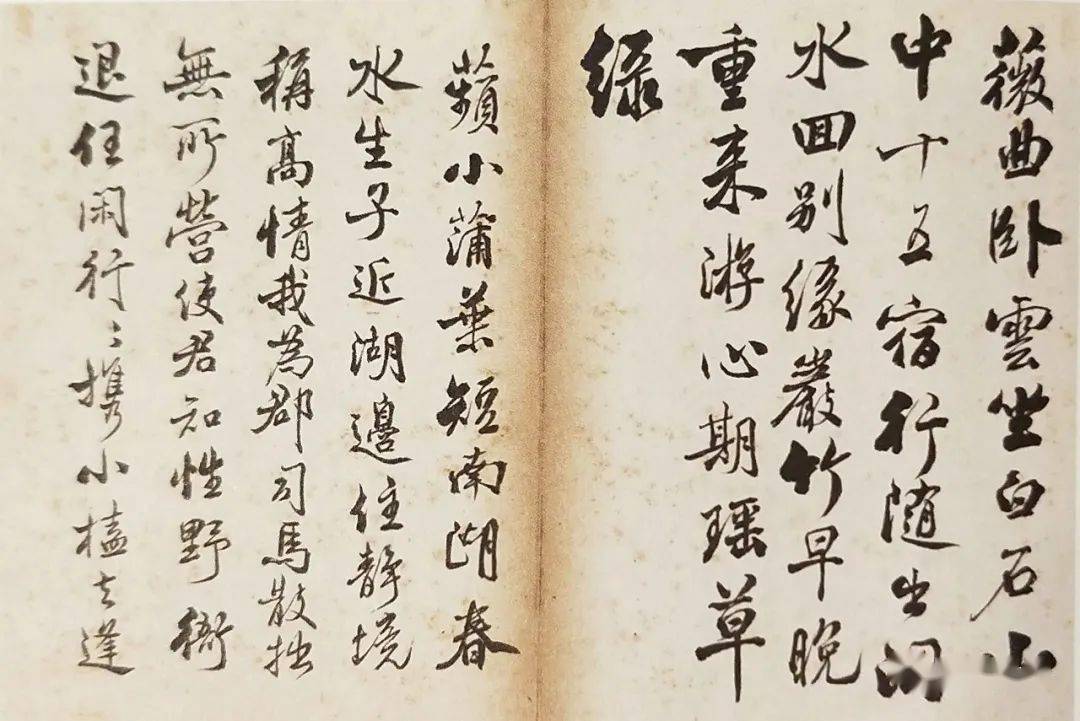 薇曲卧雲坐白石山
中十五宿行随出洞
水回别缘巖竹早晚
重来游心期瑶草
緑
蘋小蒲葉短南湖春
水生子近湖邊住静境
稱高情我為郡司馬散拙
無所營使君知性野衙
退任闲行〻携小榼去逢